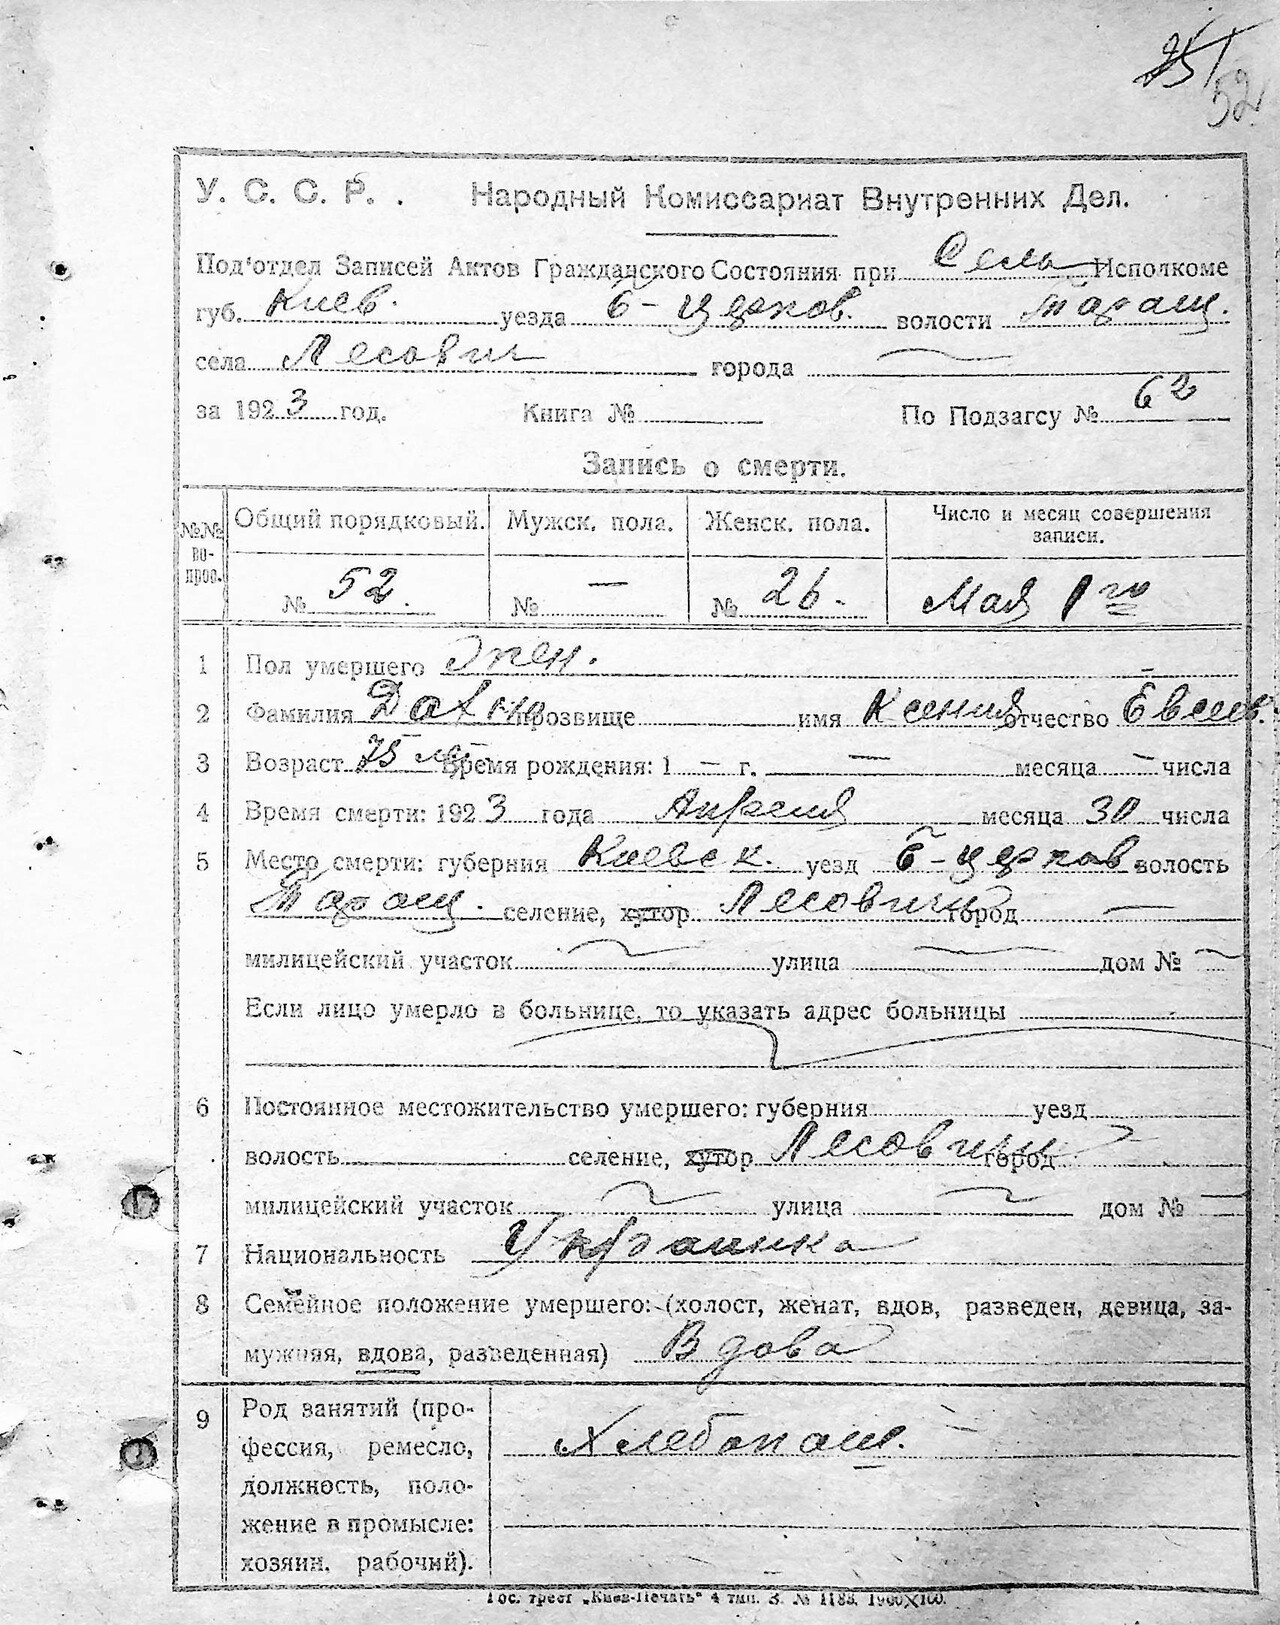 251
52
У. С. С. Р. . Народный Комиссариат Внутренних Дел.
Под'отдел Записей Актов Гражданского Состояния при Села Исполкоме
губ. Киев. уезда Б-церков. волости Таращ.
села Лесович города
за 1923 год. Книга № По Подзагсу № 62
Запись о смерти.
№№ во-прос. Общий порядковый. Мужск. пола. Женск. пола. Число и месяц совершения записи.
№ 52. № — № 26. Мая 1го
1 Пол умершего Жен.
2 Фамилия прозвище имя Ксения отчество Евсеев.
3 Возраст 75 лет Время рождения: 1 — г. — месяца — числа
4 Время смерти: 1923 года Апреля месяца 30 числа
5 Место смерти: губерния Киевск. уезд Б-церков волость
Таращ. селение, хутор Лесовичи город —
милицейский участок улица дом №
Если лицо умерло в больнице, то указать адрес больницы
6 Постоянное местожительство умершего: губерния уезд
волость селение, хутор Лесовичи город
милицейский участок улица дом №
7 Национальность Украинка
8 Семейное положение умершего: (холост, женат, вдов, разведен, девица, за-
мужняя, вдова, разведенная) Вдова
9 Род занятий (про-
фессия, ремесло, Хлебопаш.
должность, поло-
жение в промысле:
хозяин, рабочий).
Гос. трест „Киев-Печать" 4 тип. З. № 1183. 1900Х100.